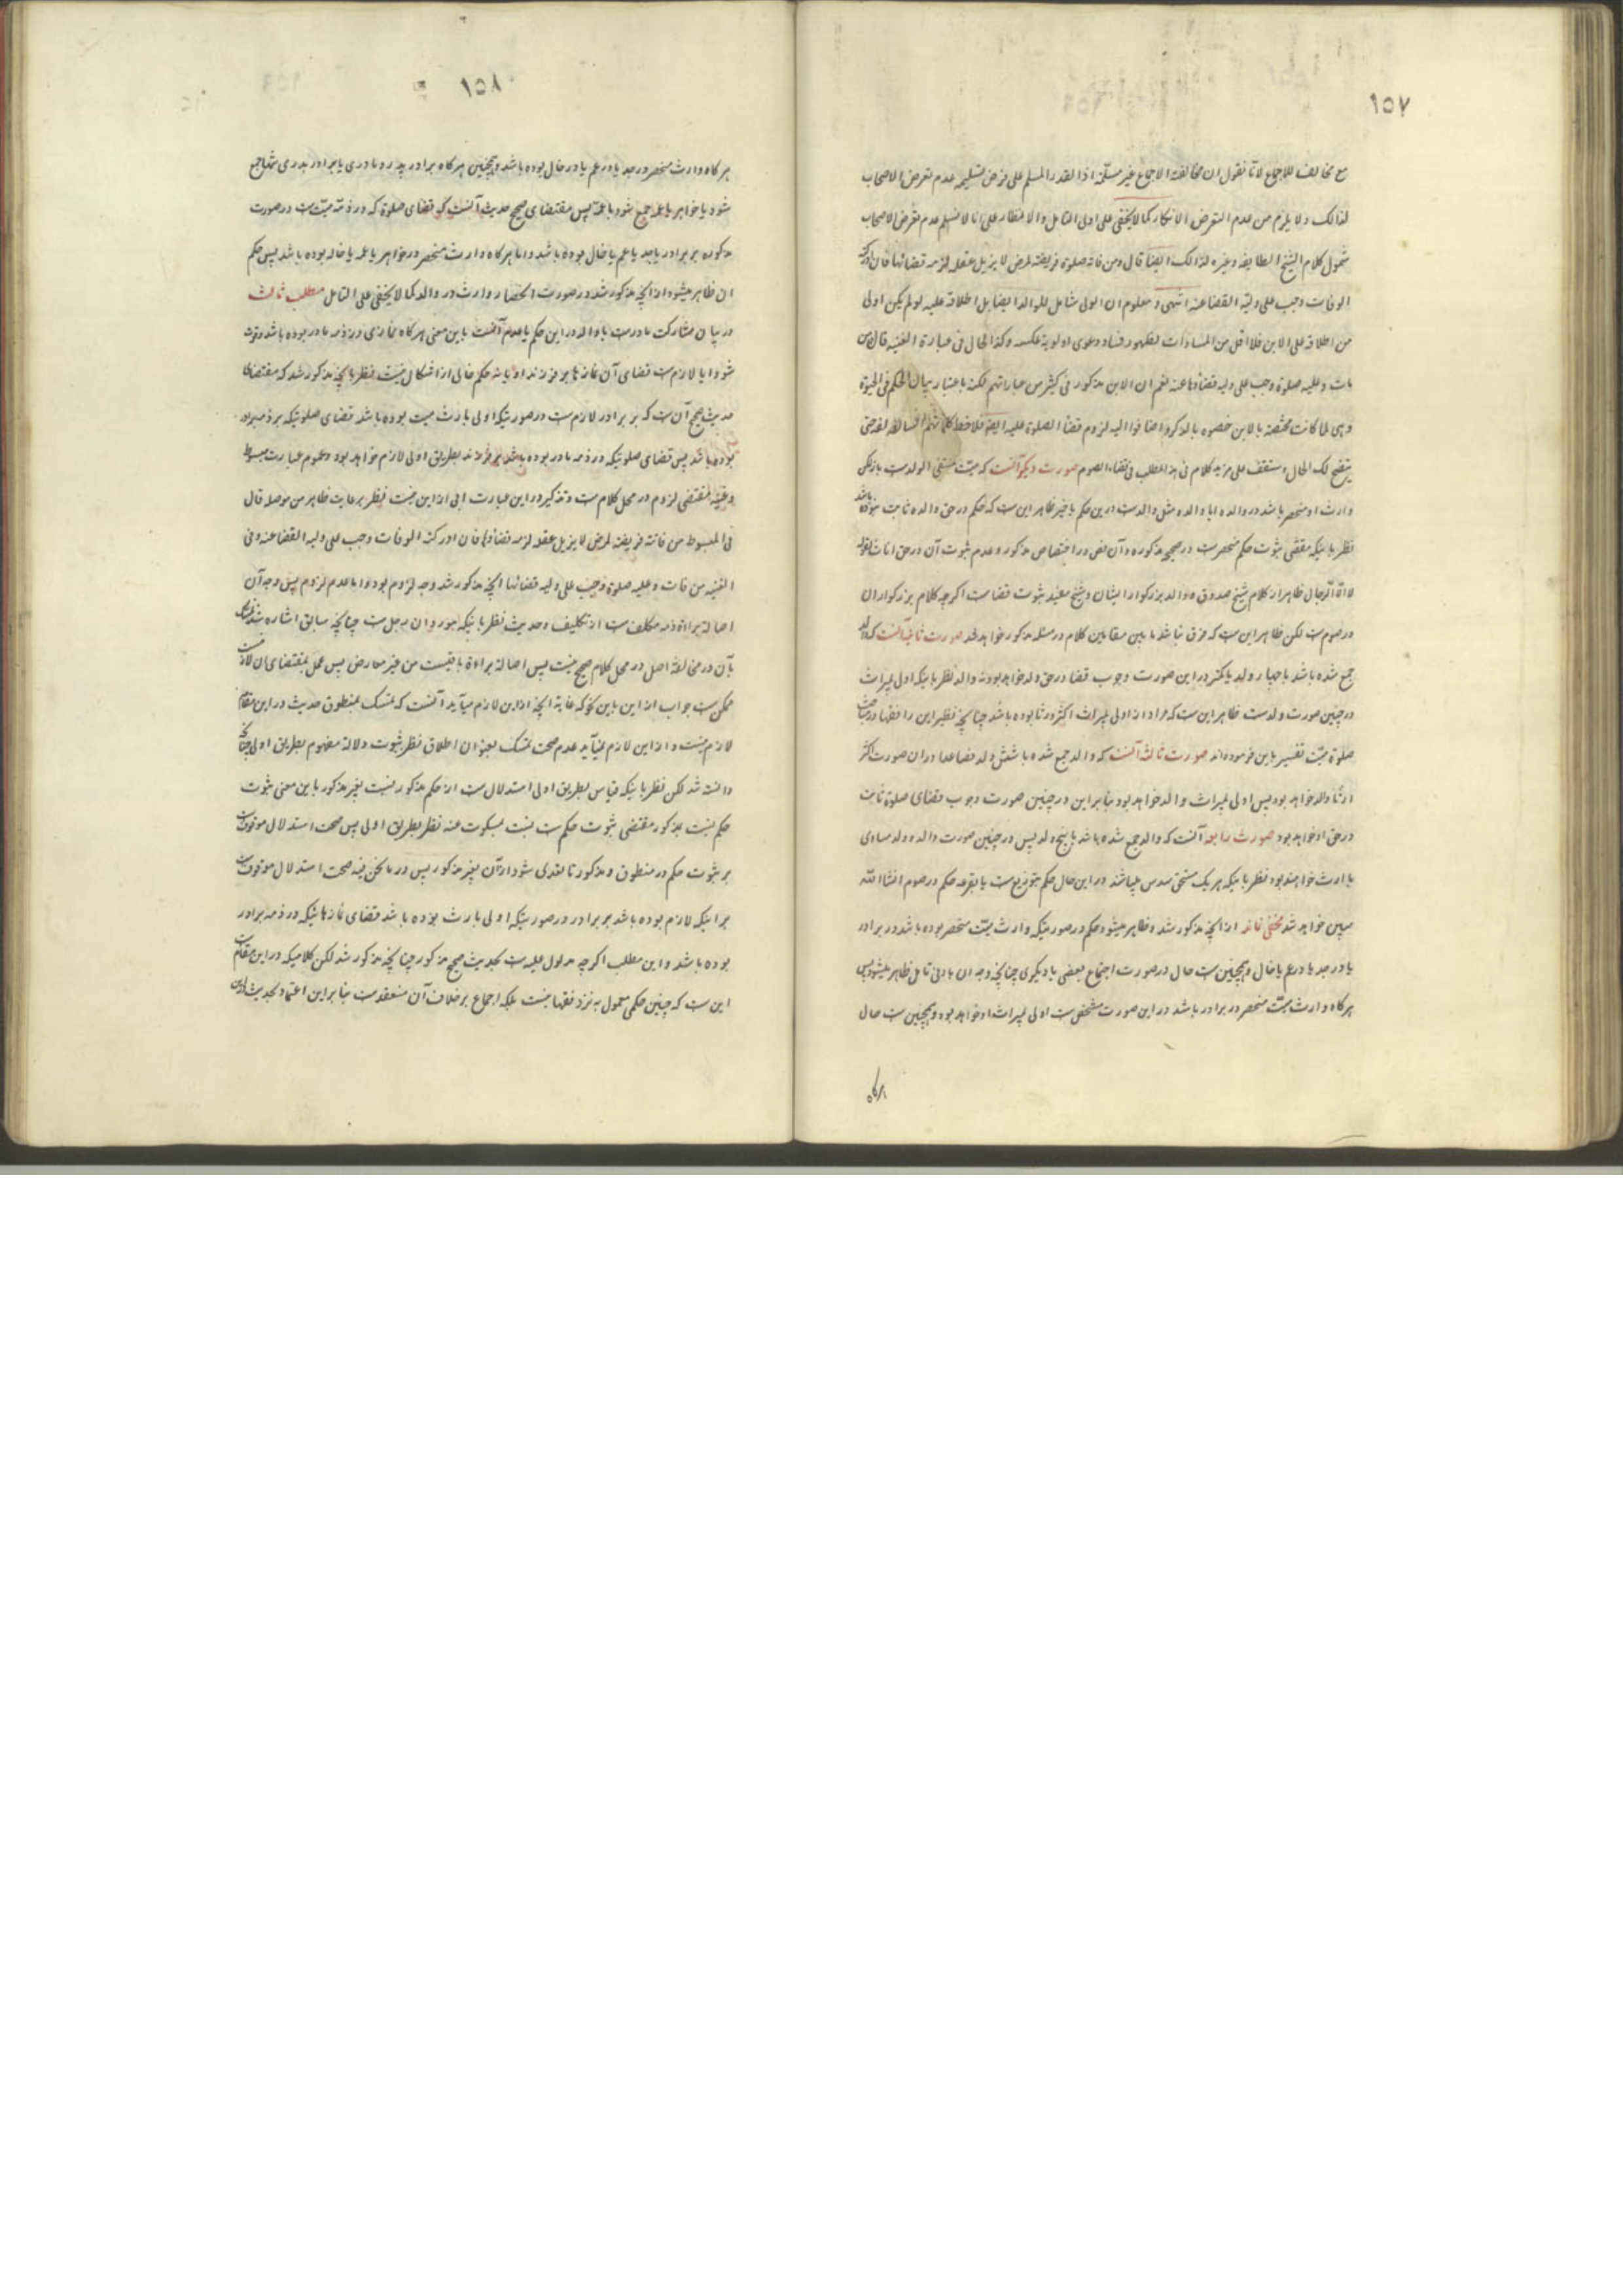 ١٥٧
مع مخالف للاجماع لانا نقول ان مخالفة الاجماع غير مسلّمة اذ القدر المسلم على فرض تسليمه عدم تعرض الاصحاب
لذالک ولا يلزم من عدم التعرض الانکار کما لا يخفى على اولى التامل والانظار على انا لا نسلم عدم تعرض الاصحاب
شمول کلام الشيخ الطايفه وغيره لذالک ايضا قال ومن فاته صلوة فريضة لمرض لا يزيل عقله لزمه قضائها فان
الوفات وجب على وليه القضا عنه انتهى و معلوم ان الولى شامل للوالد ايضا بل اطلاقه عليه لو لم يکن اولى
من اطلاقه على الابن فلا اقل من المساوات لظهور فساد دعوى اولوية عکسه وکذا الحال فى عبارة الغنيه قال من
مات وعليه صلوة وجب على وليه قضاؤها عنه نعم ان الابن مذکور فى کثير من عباراتهم لکنه باعتبار بيان الحکم فى الحبوة
وهى لما کانت مختصة بالابن خصوه بالذکر و اضافوا اليه لزوم قضاء الصلوة عليه ايضا فلاحظ کلماتهم
يتضح لک الحال و ستقف على مزيد کلام فى هذا المطلب فى قضاء الصوم صورت ديکر آنست که ميّت منتفى الولدست بازيکن
وارث او منحصر باشد در والده ايا والده مثل والدست در اين حکم يا خير ظاهر اين ست که حکم در حق والده ثابت نبوده باشد
نظر باينکه مقتضى ثبوت حکم منحصر ست در صحيحه مذکوره و آن نص در اختصاص مذکور و عدم ثبوت آن در حق اناث لقوله
لا الا الرجال ظاهر از کلام شيخ صدوق و والد بزرکوار ايشان و شيخ مفيد ثبوت قضا ست اکر چه کلام بزرکواران
در صوم ست لکن ظاهر اين ست که فرق نباشد ما بين مقامين کلام در مسئله مذکور خواهد شد صورت ثانيه آنست که والد
جمع شده باشد با چهار ولد يا کمتر در اين صورت وجوب قضا در حق ولد خواهد بود نه والد نظر باينکه اولى بميراث
در چنين صورت ولد ست ظاهر اين ست که مراد از اولى بميراث اکثر ورثا بوده باشد چنانچه نظير اين را فقها در مبحث
صلوة ميّت تفسير باين فرموده اند صورت ثالثه آنست که والد جمع شده با شش ولد فصاعدا در ان صورت اکثر
ارثا والد خواهد بود پس اولى بميراث والد خواهد بود بنابر اين در چنين صورت وجوب قضاى صلوة ثابت
در حق او خواهد بود صورت رابعه آنست که والد جمع شده باشد با پنج ولد پس در چنين صورت والد و ولد مساوى
بارث خواهند بود نظر باينکه هر يک مستحق سدس ميباشند در اين حال حکم بتوزيع ست يا بقرعه حکم در صوم انشاء الله
مبين خواهد شد مخفى نماند از آنچه مذکور شد و ظاهر ميشود حکم در صورتيکه وارث ميّت منحصر بوده باشد در برادر
يا در جد يا در عم يا خال و همچنين ست حال در صورت اجتماع بعضى با ديکرى چنانچه وجه ان بادنى تامل ظاهر ميشود پس
هرکاه وارث ميّت منحصر در برادر باشد در اين صورت مشخص ست اولى بميراث او خواهد بود و همچنين ست حال
هرکاه
١٥٨
هرکاه وارث منحصر در جد يا در عم يا در خال بوده باشد و همچنين هرکاه برادر پدر و مادرى يا برادر پدرى تنها جمع
شود با خواهر يا عم جمع شود با عمّه پس مقتضاى صحيح حديث آنست که قضاى صلوة که در ذمّه ميّت ست در صورت
مذکوره بر برادر يا جد يا عم يا خال بوده باشد و اما هرکاه وارث منحصر در خواهر يا عمه يا خاله بوده باشد پس حکم
ان ظاهر ميشود از آنچه مذکور شد در صورت انحصار وارث در والده کما لا يخفى على التامل مطلب ثالث
در بيان مشارکت مادرست با والد در اين حکم يا عدم آنست باين معنى هرکاه نمازى در ذمه مادر بوده باشد و فوت
شود ايا لازم ست قضاى آن نمازها بر فرزند او يا نه حکم خالى از اشکال نيست نظر بانچه مذکور شد که مقتضاى
حديث صحيح آن ست که بر برادر لازم ست در صورتيکه اولى بارث ميت بوده باشد قضاى صلوتيکه بر ذمه برادر
بوده باشد پس قضاى صلوتيکه در ذمه مادر بوده باشد بر فرزند بطريق اولى لازم خواهد بود و عموم عبارت مبسوط
و غنيه مقتضى لزوم در محل کلام ست و تذکير در اين عبارت ابى از اين نيست نظر برعايت ظاهر من موصله قال
فى المبسوط من فاتته فريضة لمرض لا يزيل عقله لزمه قضاؤها فان ادرکته الوفات وجب على وليه القضا عنه و فى
الغنيه من مات و عليه صلوة وجب على وليه قضائها انچه مذکور شد وجه لزوم بود و اما عدم لزوم پس وجه آن
اصالة براءة ذمه مکلف ست از تکليف و حديث نظر باينکه مورد ان رجل ست چنانچه سابق اشاره شد
بآن در مخالفة اصل در محل کلام صحيح نيست پس اصالة براءة باقيست من غير معارض پس عمل بمقتضاى ان لازم
ممکن ست جواب از اين باين نحو که غاية انچه از اين لازم ميآيد آنست که تمسک بمنطوق حديث در اين مقام
لازم نيست و از اين لازم نميآيد عدم صحت تمسک بعنوان اطلاق نظر بثبوت دلالة مفهوم بطريق اولى چنانچه
دانسته شد لکن نظر باينکه قياس بطريق اولى استدلال ست از حکم مذکور نسبت بغير مذکور باين معنى ثبوت
حکم نسبت بمذکور مقتضى ثبوت حکم ست نسبت بمسکوت عنه نظر بطريق اولى پس صحت استدلال موقوف ست
بر ثبوت حکم در منطوق و مذکور تا تعدى شود از آن بغير مذکور پس در ما نحن فيه صحت استدلال موقوف ست
بر اينکه لازم بوده باشد بر برادر در صورتيکه اولى بارث بوده باشد قضاى نمازهائيکه در ذمه برادر
بوده باشد و اين مطلب اکرچه مدلول عليه ست بحديث صحيح مذکور چنانچه مذکور شد لکن کلاميکه در اين مقام
اين ست که چنين حکمى معمول به نزد فقها نيست بلکه اجماع بر خلاف آن منعقد ست بنابر اين اعتماد بحديث